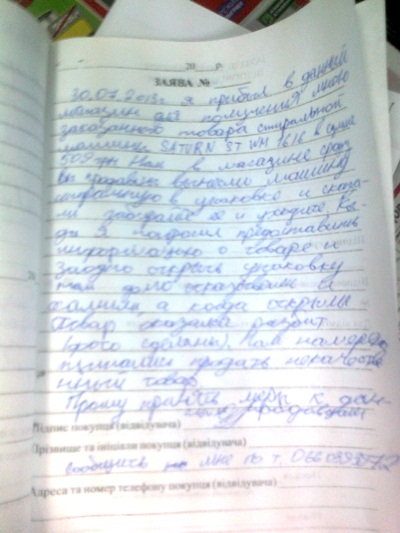 20 р.
ЗАЯВА №
30.07.2013г. я прибыл в данный
магазин для получения мною
заказанного товара стиральной
машины SATURN ST WM 1616 в сумме
509 грн Нам в магазине сразу
вы продавцы вынесли машину
в упаковке и сказа-
ли забирайте её и уходите. Ко-
гда я попросил предоставить
информацию о товаре и
заодно открыть упаковку
нам долго отказывали и
хамили, а когда открыли
товар оказался разбит
(фото сделаны). Нам намерено
пытались продать некачестве
нный товар.
Прошу принять меры к дан-
ным продавцам
Підпис покупця (відвідувача)
Прізвище та ініціали покупця (відвідувача)
сообщить мне по т. 0660393772
Адреса та номер телефону покупця (відвідувача)